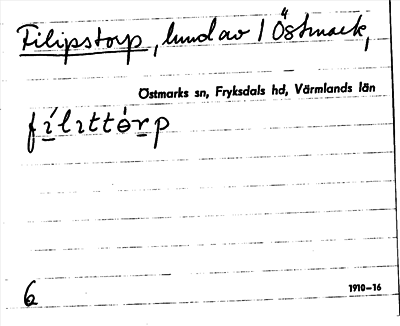 Filipstorp, lund av 1 Östmark,
Östmarks sn, Fryksdals hd, Värmlands län
fílıttórp
6
1910–16